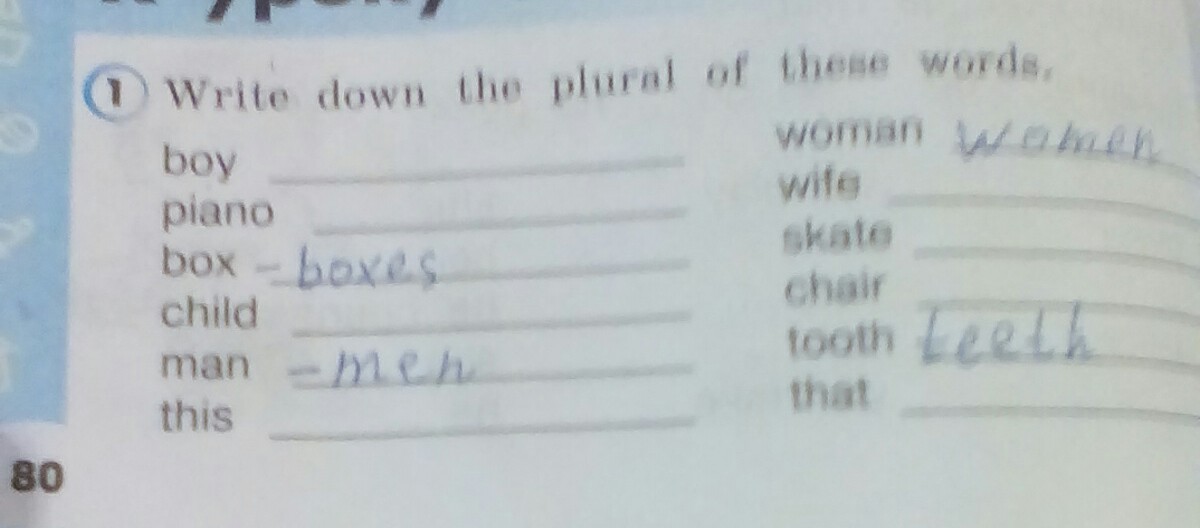 1 Write down the plural of these words.
boy
piano
box - boxes
child
man - men
this
woman women
wife
skate
chair
tooth teeth
that
80